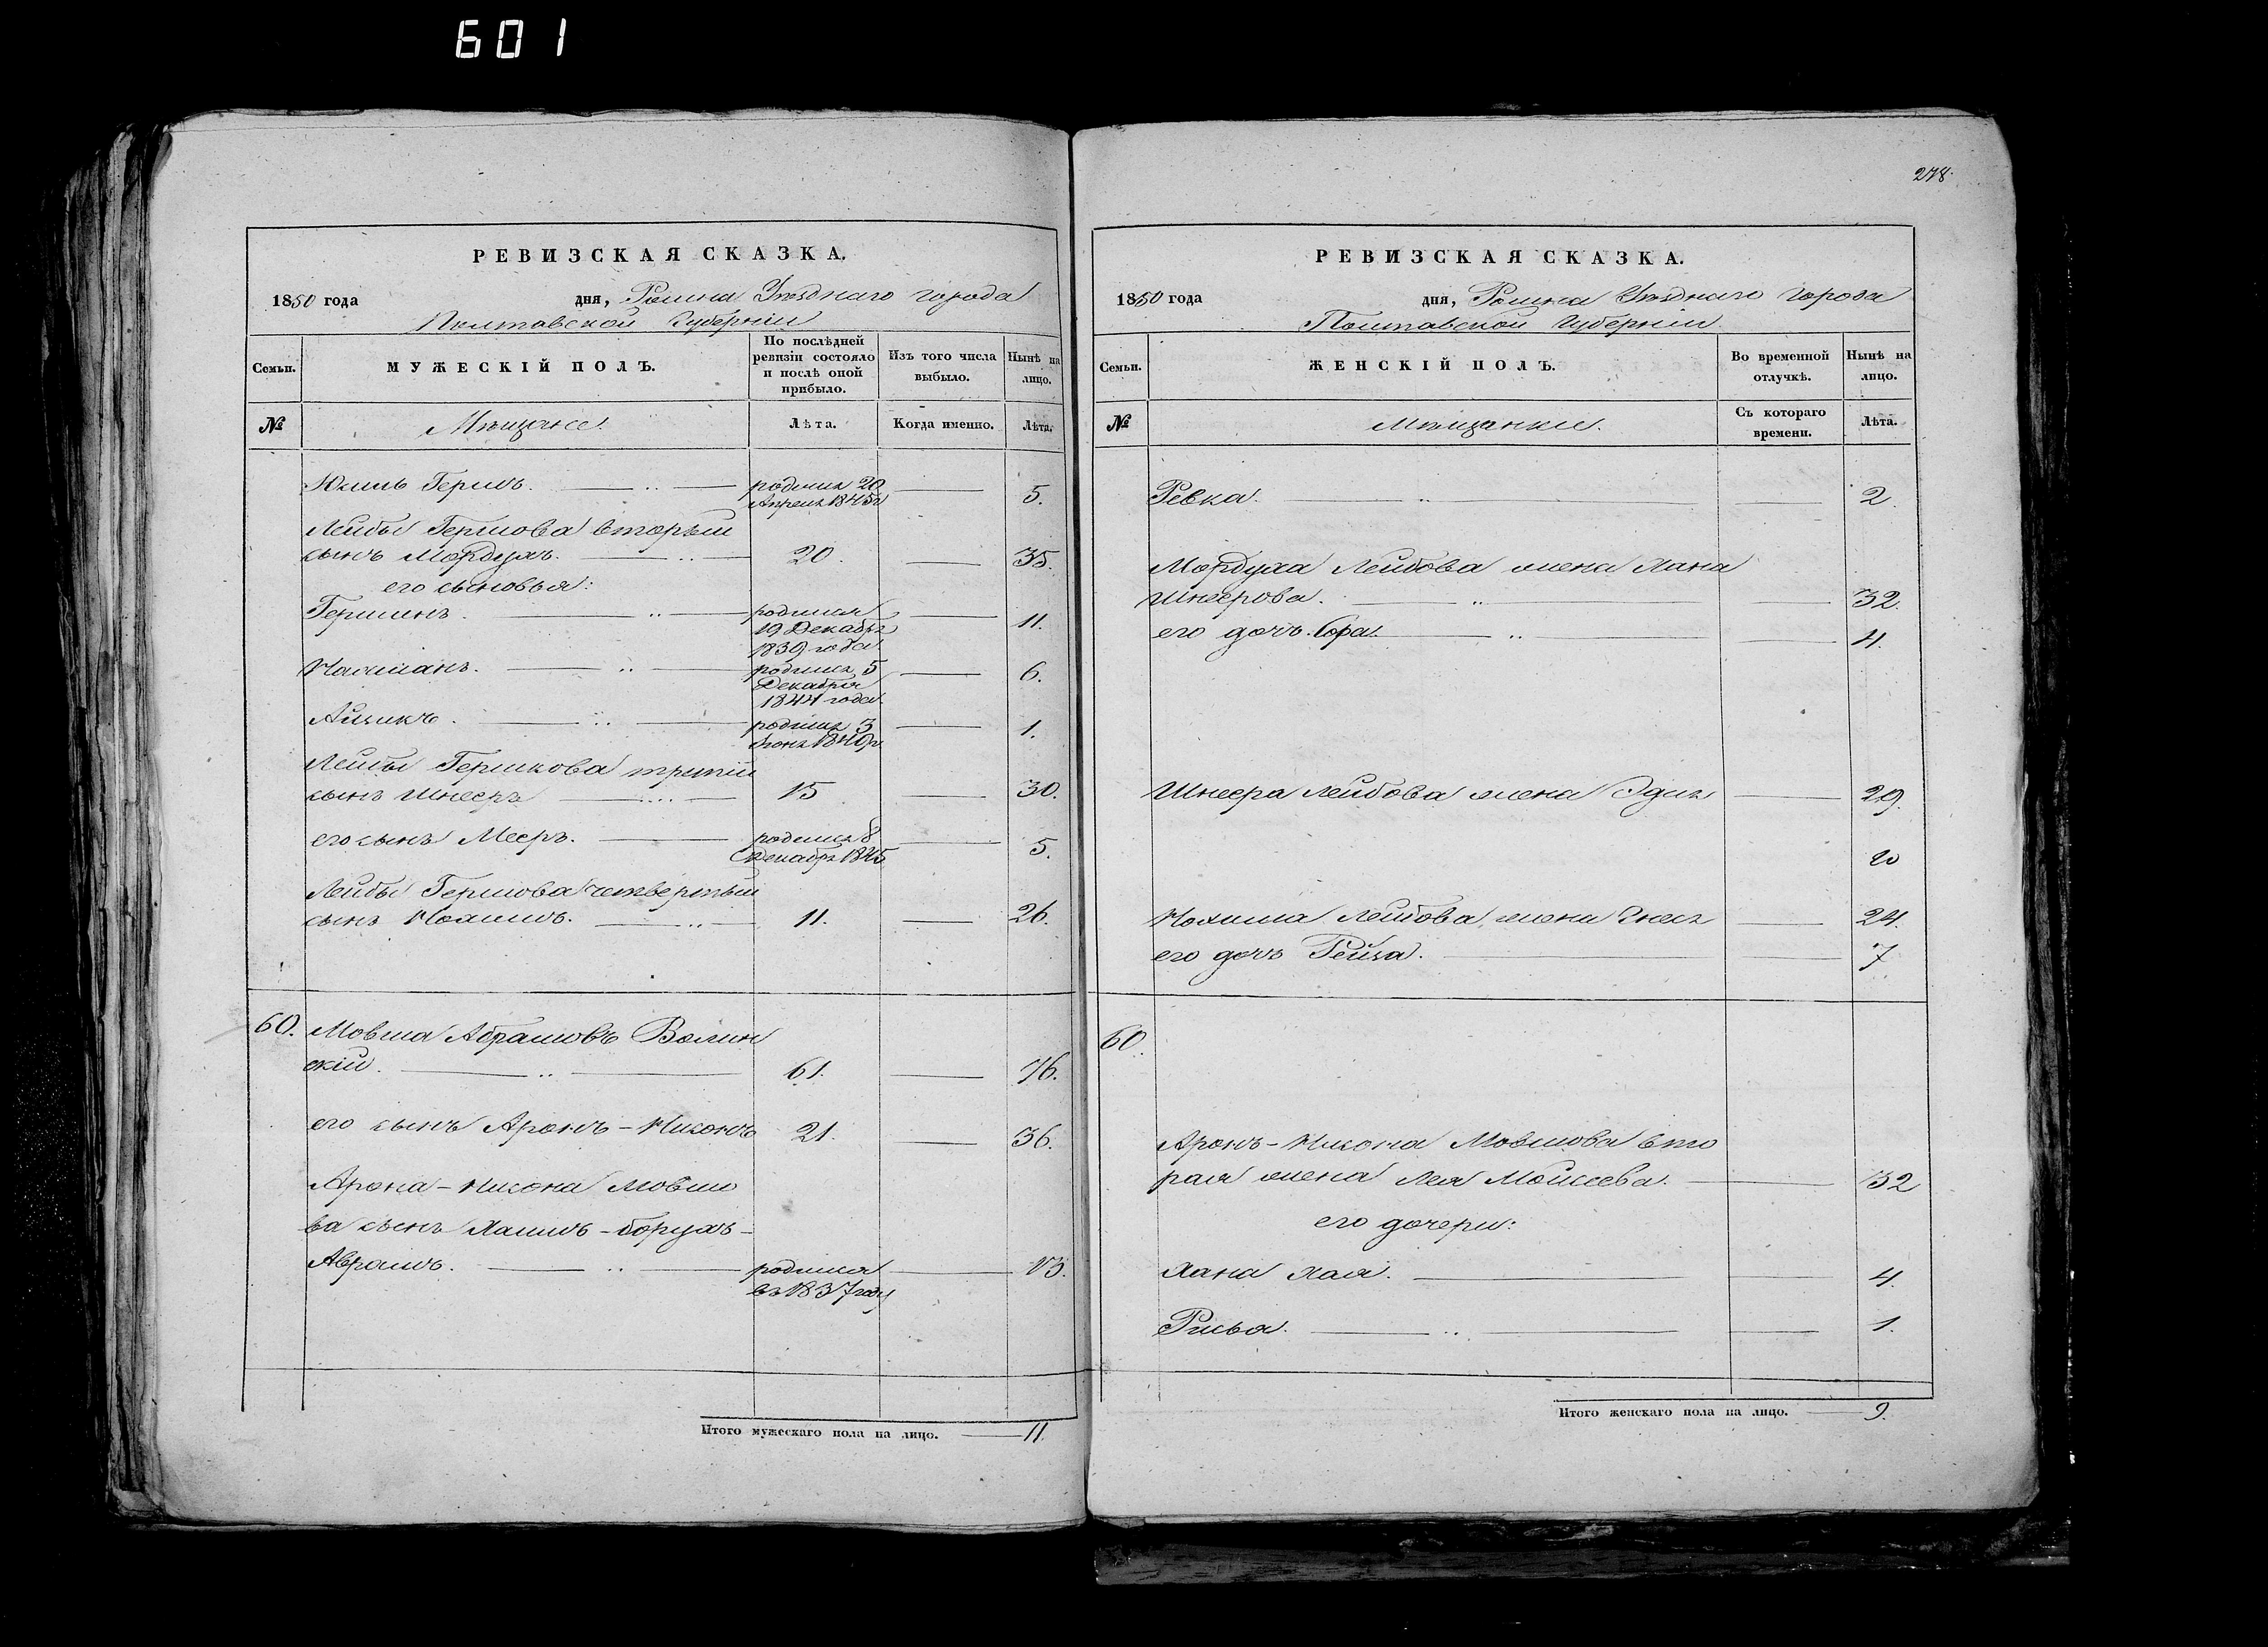 601
278.
РЕВИЗСКАЯ СКАЗКА.
1850 года дня, Ромна Уѣзднаго города
Полтавской Губерніи
Семьи. МУЖЕСКІЙ ПОЛЪ. По послѣдней ревизіи состояло и послѣ оной прибыло. Изъ того числа выбыло. Нынѣ на лицо.
№ Мѣщане. Лѣта. Когда именно. Лѣта.
родился 20 5.
Апреля 1845г
Лейбы Гершова вторый
сынъ Мордухъ. 20. 35.
его сыновья:
родился 11.
19 Декабря
1839 года
Нахманъ. родился 5 6.
Декабря
1844 года.
Айзикъ. родился 3 1.
1849г
Лейбы Гершкова третій
сынъ Шнееръ 15 30.
его сынъ Мееръ. родился 8 5.
Декабря 1845
Лейбы Гершова четвертый
сынъ Нохимъ. 11. 26.
60. Мовша Абрамовъ Волин
скій. 61. 76.
его сынъ Аронъ-Нисонъ 21. 36.
Арона-Нисона Мовшо
ва сынъ Хаимъ-Борухъ-
Аврамъ. родился 13.
въ 1837 году
Итого мужескаго пола на лицо. 11.
РЕВИЗСКАЯ СКАЗКА.
1850 года дня, Ромна Уѣзднаго города
Полтавской Губерніи
Семьи. ЖЕНСКІЙ ПОЛЪ. Во временной отлучкѣ. Нынѣ на лицо.
№ Мѣщанки. Съ котораго времени. Лѣта.
Ревка. 2.
Мордуха Лейбова жена Хана
Шнеерова. 32.
его дочь Сора. 4.
Шнеера Лейбова жена 29.
Нохима Лейбова жена 24.
его дочь Рейза. 7
60.
Аронъ-Нисона Мовшова вто
рая жена Лея Мойсеева. 32
его дочери:
Хана Хая. 4.
1.
Итого женскаго пола на лицо. 9.